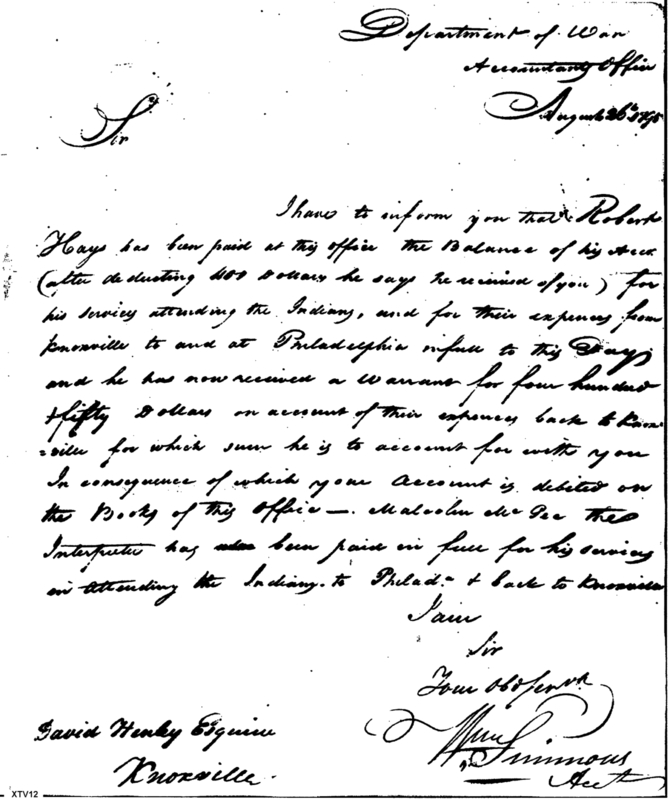 Department of War
Accountants Office
August 26th 1795
Sir
I have to inform you that Robert
Hays has been paid at this office the Balance of his Acct.
(after deducting 400 Dollars he says he received of you) for
his services attending the Indians, and for their expences from
Knoxville to and at Philadelphia in full to this Day,
and he has now received a Warrant for four hundred
& fifty Dollars on account of their expences back to Knox=
=ville for which sum he is to account for with you
In consequence of which your Account is debited on
the Books of this Office —. Malcolm McGee the
Interpreter has been paid in full for his services
in attending the Indians to Philada. & back to Knoxville
I am
Sir
Your Ob Servt
Wm Simmons
Acct
David Henley Esquire
Knoxville.
XTV12